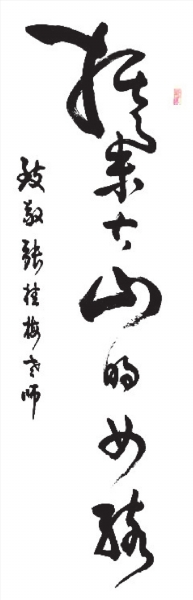 大山的女孩
致敬张桂梅老师